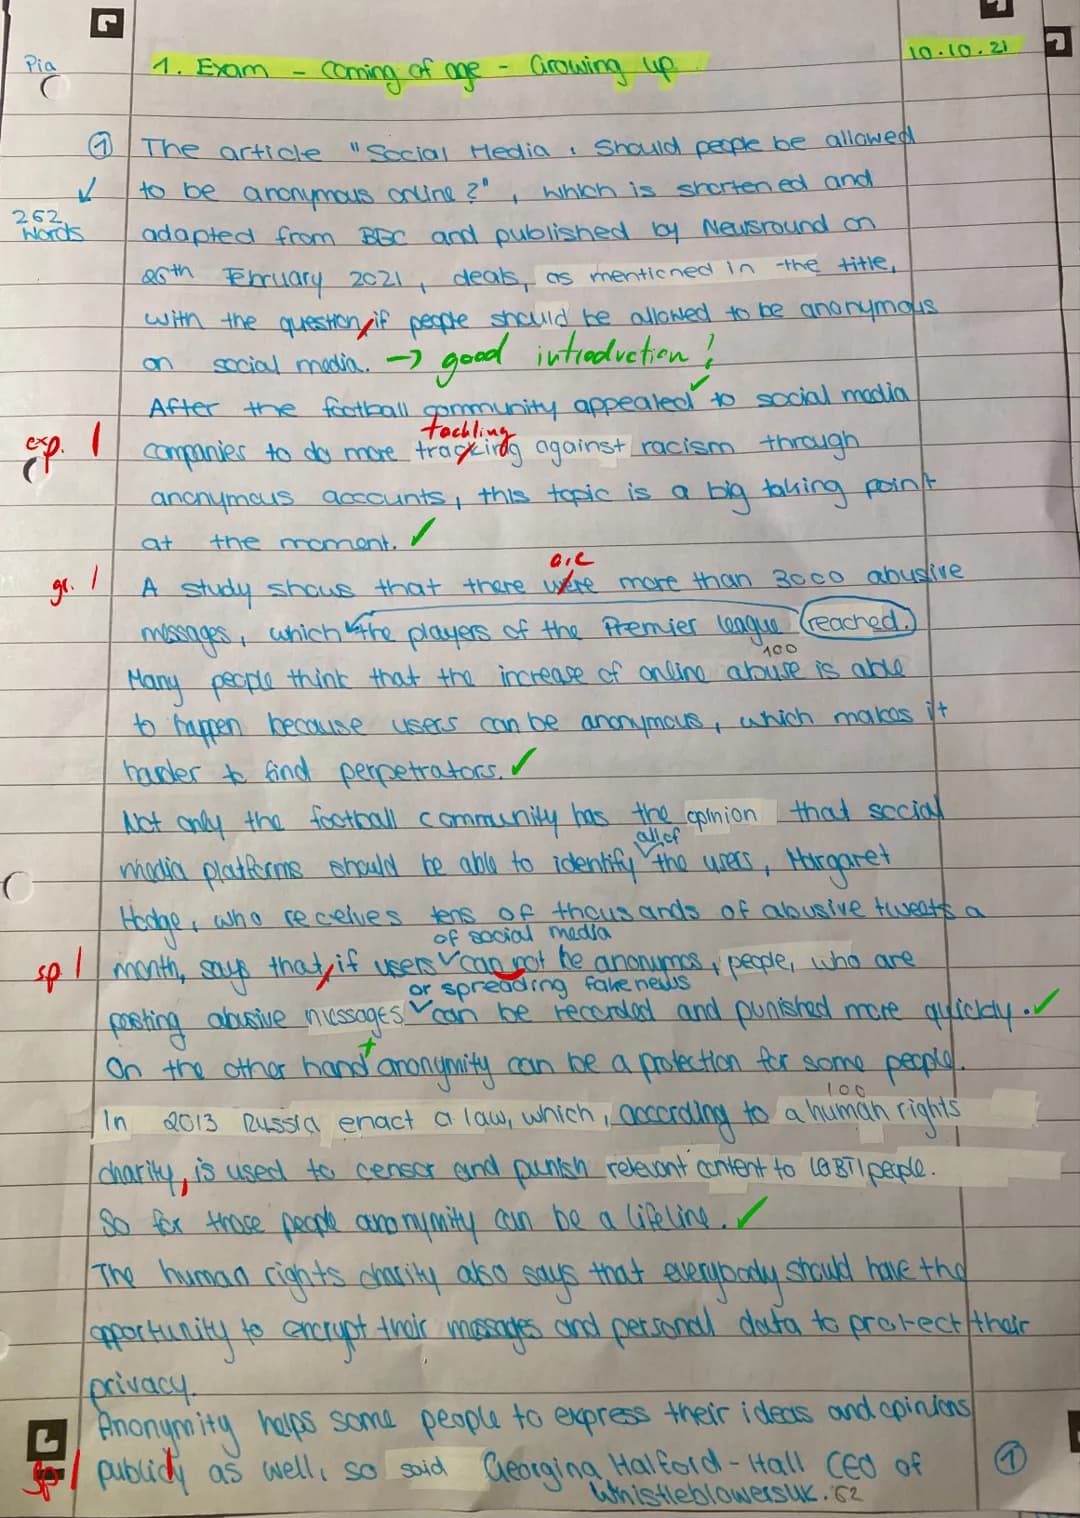 Pia
1. Exam - Coming of age - Growing up
10.10.21
① The article "Social Media : Should people be allowed
✓ to be anonymous online?", which is shortened and
262 Words
adapted from BBC and published by Newsround on
26th February 2021, deals, as mentioned in the title,
with the question, if people should be allowed to be anonymous
on social media. → good introduction!
After the football community appealed ✓ to social media
tackling
exp. | companies to do more tracking against racism through
anonymous accounts, this topic is a big talking point
at the moment. ✓
are
gr. | A study shows that there were more than 3000 abusive
messages, which the players of the Premier league reached.
100
Many people think that the increase of online abuse is able
to happen because users can be anonymous, which makes it
harder to find perpetrators. ✓
Not only the football community has the opinion that social
all of
media platforms should be able to identify the users, Margaret
Hodge, who receives tens of thousands of abusive tweets a
of social media
sp | month, says that, if users can not be anonymos, people, who are
or spreading fake news
posting abusive messages can be recorded and punished more quickly. ✓
On the other hand + anonymity can be a protection for some people.
100
In 2013 Russia enact a law, which, according to a human rights
charity, is used to censor and punish relevant content to LGBTI people.
So for those people anonymity can be a lifeline. ✓
The human rights charity also says that everybody should have the
opportunity to encrypt their messages and personal data to protect their
privacy.
Anonymity helps some people to express their ideas and opinions
sp | publicly as well, so said Georgina Halford-Hall CEO of
Whistleblowersuk. 62
①